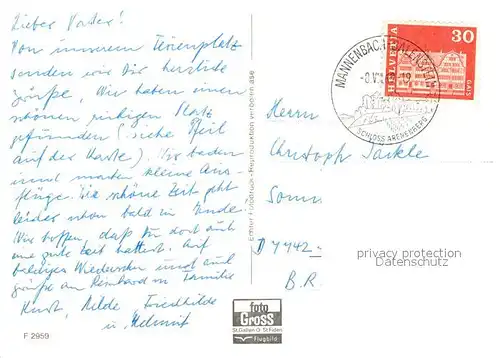 Lieber Vater!
Von unserem Ferienplatz
senden wir Dir herzliche
Grüße. Wir haben einen
schönen ruhigen Platz
gefunden (siehe Pfeil
auf der Karte). Wir baden
und machen kleine Aus-
flüge. Die schöne Zeit geht
leider schon bald zu Ende
Wir hoffen, daß Du dort auch
eine gute Zeit hattest. Auf
baldiges Wiedersehn und auch
Grüße an Reinhard u. Familie
Kurt, Hilde, Friedhilde
u. Helmut
F 2959
Echter Fotodruck - Reproduktion verboten
foto
Gross
St. Gallen O. St. Fiden
Flugbild
MANNENBACH-SALENSTEIN
SCHLOSS ARENENBERG
HELVETIA
30
GAIS
Herrn
Christoph
D 7742
B.R.
privacy protection
Datenschutz